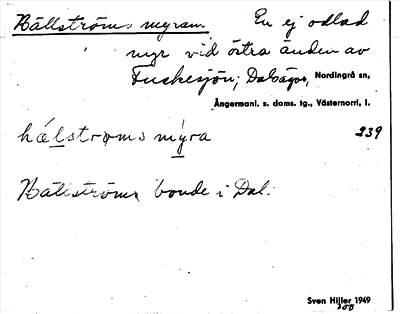 Hällströms myran. En ej odlad
myr vid östra änden av
Fuskesjön, Dal, Nordingrå sn,
Ångermanl. s. doms. tg., Västernorrl. l.
hälstroms myra 239
Hällström bonde i Dal.
Sven Hiller 1949